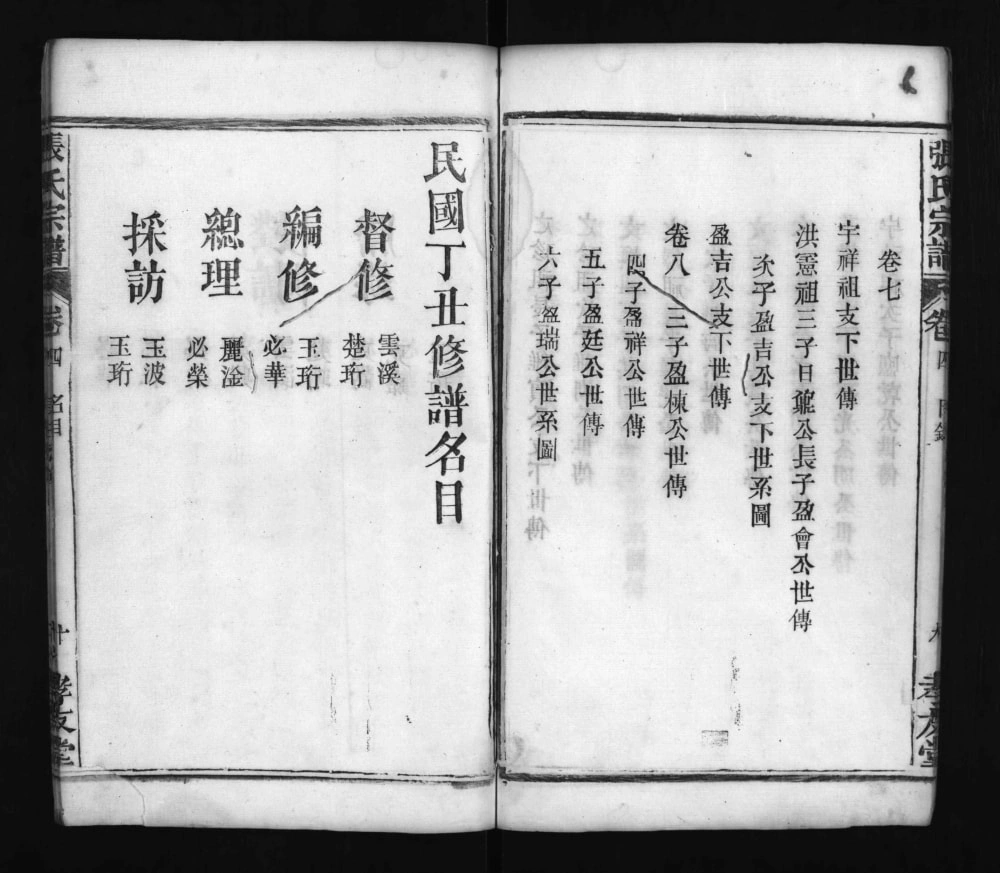 張氏宗譜
卷四
目錄
九
孝友堂
卷七
宇祥祖支下世傳
洪憲祖三子日𪚩公長子盈會公世傳
次子盈吉公支下世系圖
盈吉公支下世傳
卷八 三子盈棟公世傳
四子盈祥公世傳
五子盈廷公世傳
六子盈瑞公世系圖
民國丁丑修譜名目
督修
雲溪
楚珩
編修
玉珩
必華
總理
麗淦
必榮
採訪
玉波
玉珩
張氏宗譜
卷四
名目
十
孝友堂